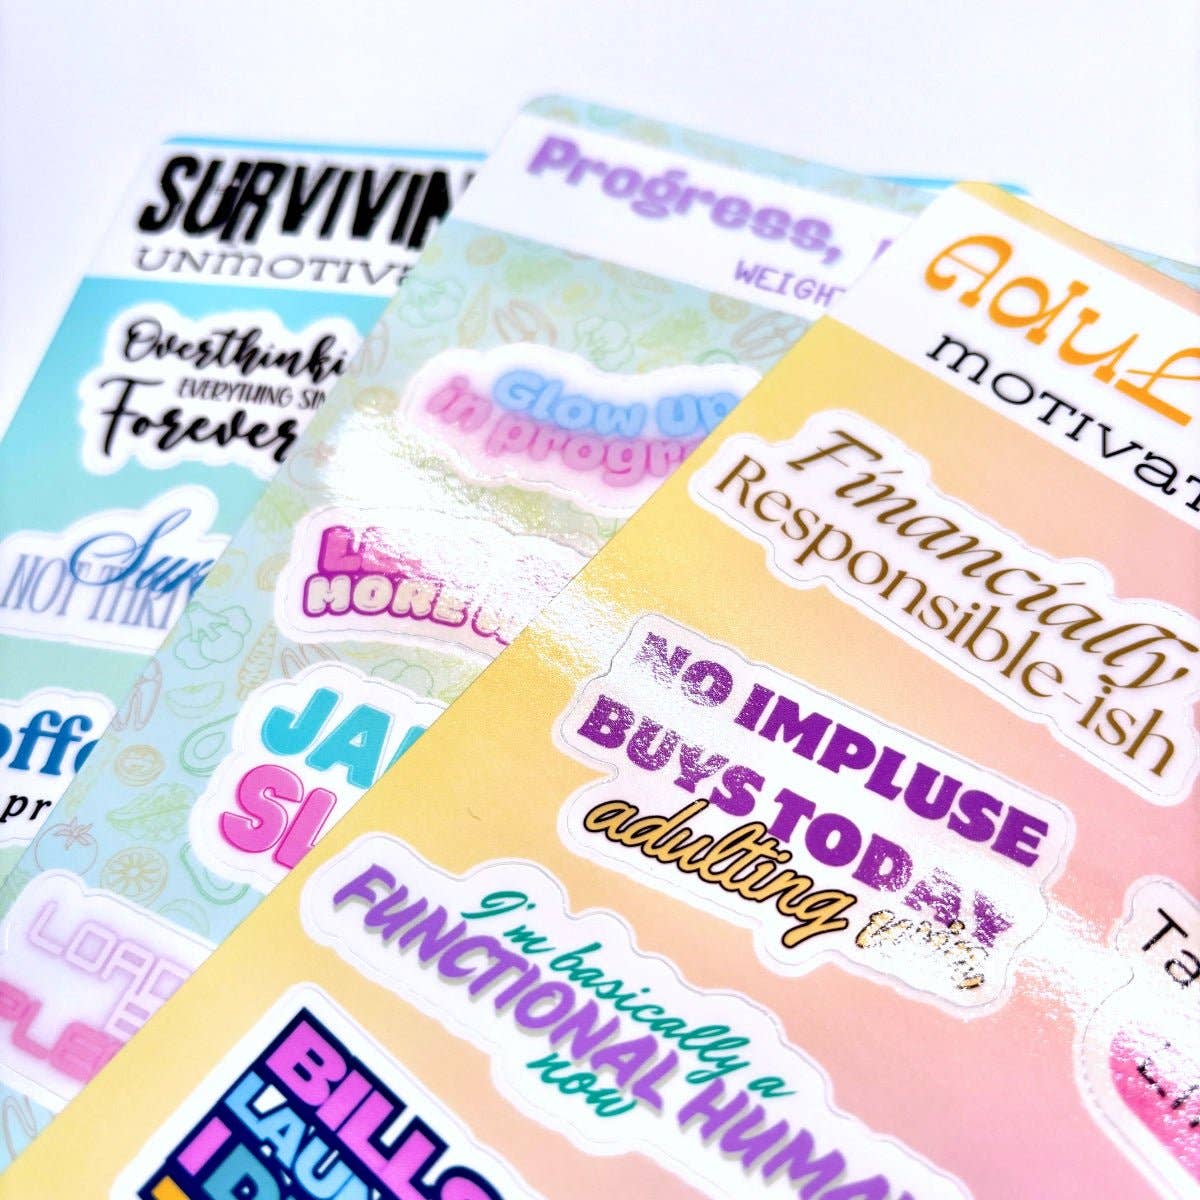 SURVIVIN
UNMOTIVA
Overthinki
EVERYTHING SIN
Forever
Sur
NOT THIR
offe
pr
Progress,
WEIGHT
Glow Up
in progr
MORE
JA
SL
LOAD
PLE
Adul
MOTIVAT
Financially
Responsible-ish
NO IMPLUSE
BUYS TODAY
adulting
I'm basically a
FUNCTIONAL HUMA
now
BILLS
LAUN
Ta